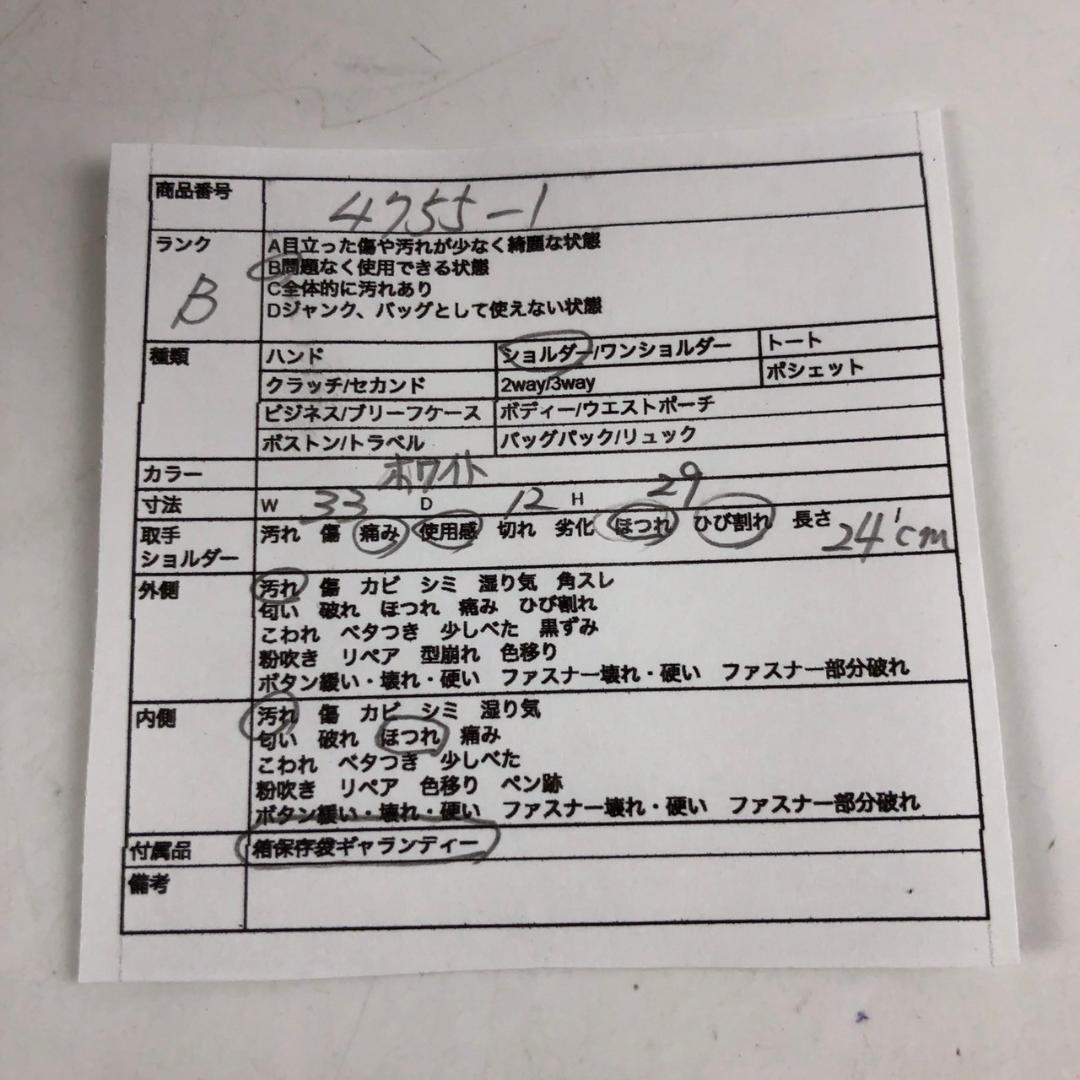 商品番号 4755-1
ランク B
A目立った傷や汚れが少なく綺麗な状態
B問題なく使用できる状態
C全体的に汚れあり
Dジャンク、バッグとして使えない状態
種類 ハンド ショルダー/ワンショルダー トート
クラッチ/セカンド 2way/3way ポシェット
ビジネス/ブリーフケース ボディー/ウエストポーチ
ボストン/トラベル バッグパック/リュック
カラー ホワイト
寸法 W 33 D 12 H 29
取手 汚れ 傷 痛み 使用感 切れ 劣化 ほつれ ひび割れ 長さ 24cm
ショルダー
外側 汚れ 傷 カビ シミ 湿り気 角スレ
匂い 破れ ほつれ 痛み ひび割れ
こわれ ベタつき 少しべた 黒ずみ
粉吹き リペア 型崩れ 色移り
ボタン緩い・壊れ・硬い ファスナー壊れ・硬い ファスナー部分破れ
内側 汚れ 傷 カビ シミ 湿り気
匂い 破れ ほつれ 痛み
こわれ ベタつき 少しべた
粉吹き リペア 色移り ペン跡
ボタン緩い・壊れ・硬い ファスナー壊れ・硬い ファスナー部分破れ
付属品 箱保存袋ギャランティー
備考